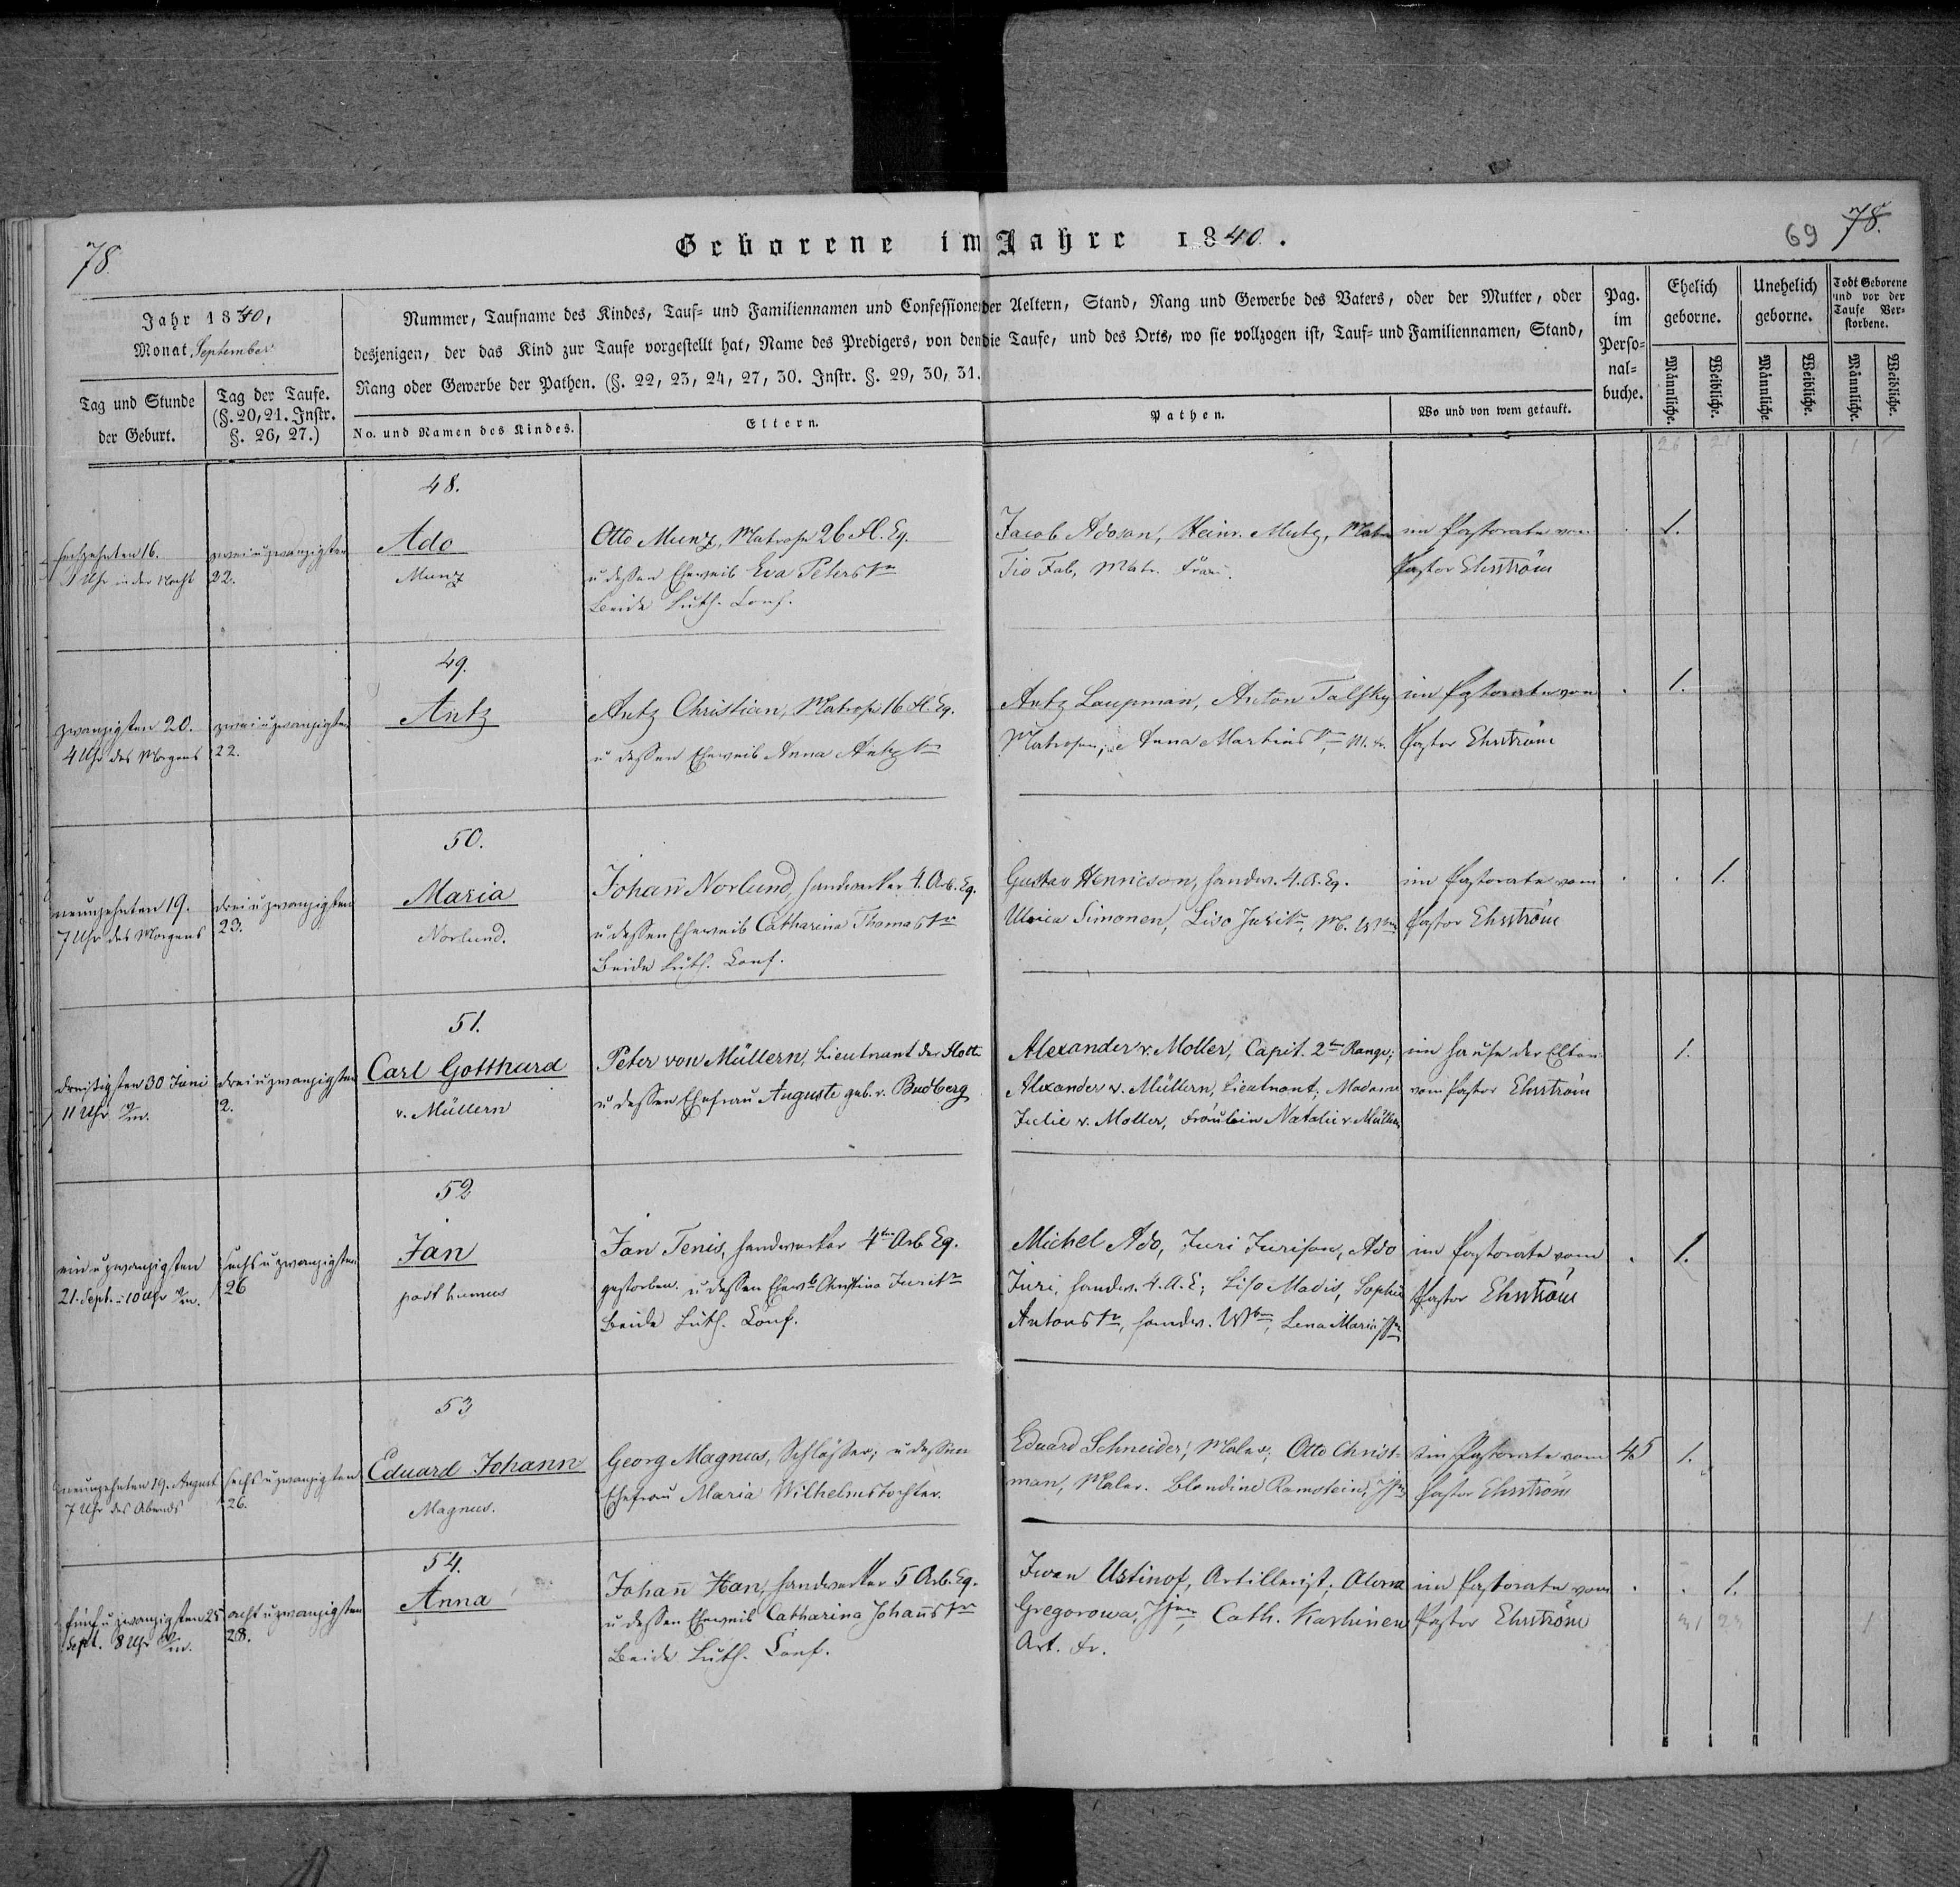 78.
Geborene im Jahre 1840.
69 78.
Jahr 1840,
Monat September
Tag und Stunde
der Geburt.
Tag der Taufe.
(§. 20, 21. Instr.
§. 26, 27.)
Nummer, Taufname des Kindes, Tauf- und Familiennamen und Confessionen der Aeltern, Stand, Rang und Gewerbe des Vaters, oder der Mutter, oder
desjenigen, der das Kind zur Taufe vorgestellt hat, Name des Predigers, von dem die Taufe, und des Orts, wo sie vollzogen ist, Tauf- und Familiennamen, Stand,
Rang oder Gewerbe der Pathen. (§. 22, 23, 24, 27, 30. Instr. §. 29, 30, 31.
No. und Namen des Kindes.
Eltern.
Pathen.
Wo und von wem getauft.
Pag.
im
Perso-
nal-
buche.
Ehelich
geborne.
Unehelich
geborne.
Todt Geborene
und vor der
Taufe Ver-
storbene.
Männliche.
Weibliche.
Männliche
Weibliche.
Männliche.
Weibliche.
26 21 1 1
sechzehnten 16.
1 Uhr in der Nacht
zweiuzwanzigsten
22.
48.
Ado
Munz
Otto Munz, Matrose 26 Fl. Eq.
u dessen Eheweib Eva Peterstr
Beide Luth. Conf.
Jacob Adoson, Heinr. Mutz, Matr
Tio Fab, Matr. Frau.
im Pastorate von
Pastor Ehrström
1.
zwanzigsten 20.
4 Uhr des Morgens
zweiuzwanzigsten
22.
49.
Antz
Antz Christian, Matrose 16 Fl. Eq.
u dessen Eheweib Anna Antztr
Antz Laupman, Anton Talsky
Matrosen, Anna Martinstr, M. Fr.
im Pastorate von
Pastor Ehrström
1.
neunzehnten 19.
7 Uhr des Morgens
dreiuzwanzigsten
23.
50.
Maria
Norlund.
Johan̄ Norlund, Handwerker 4. Arb. Eq.
u dessen Eheweib Catharina Thomastr
Beide Luth. Conf.
Gustav Henricson, Handw. 4. A. Eq.
Ulrica Simonen, Liso Juritr, M.
im Pastorate vom
Pastor Ehrström
1.
dreisigsten 30 Juni
11 Uhr
dreiuzwanzigsten
2.
51.
Carl Gotthard
v. Müllern
Peter von Müllern, Lieutnant der Flotte
u dessen Ehefrau Auguste geb. v. Budberg
Alexander v. Moller, Capit. 2ten Range;
Alexander v. Müllern, Lieutnant; Madame
Julie v. Moller, Fräulein Natalie v. Müllern
im Hause der Eltern
vom Pastor Ehrström
1.
einuzwanzigsten
21. Sept. 10 Uhr
sechsuzwanzigsten
26
52
Jan
posthumus
Jan Tenis, Handwerker 4ten Arb Eq.
gestorben. u dessen Ehewb Christina Juritr
Beide Luth. Conf.
Michel Ado, Juri Jurison, Ado
Juri, Handw. 4. A. E; Liso Madis, Sophie
Antonstr, Handw. Wbr, Lena Maria
im Pastorate vom
Pastor Ehrström
1.
neunzehnten 19. August
7 Uhr des Abends
sechsuzwanzigsten
26.
53
Eduard Johann
Magnus.
Georg Magnus, Schlösser; u dessen
Ehefrau Maria Wilhelmstochter.
Eduard Schneider, Maler; Otto Christ-
man, Maler. Blondine Ramstein,
im Pastorate vom
Pastor Ehrström
45
1.
fünfuzwanzigsten 25
Sept. 8 Uhr
achtuzwanzigsten
28.
54.
Anna
Johan̄ Han, Handwerker 5 Arb. Eq.
u dessen Eheweib Catharina Johan̄str
Beide Luth. Conf.
Iwan Ustinof, Artillerist, Alona
Gregorowa, Cath. Karhinen
Art. Fr.
im Pastorate vom
Pastor Ehrström
1.
31 23 1